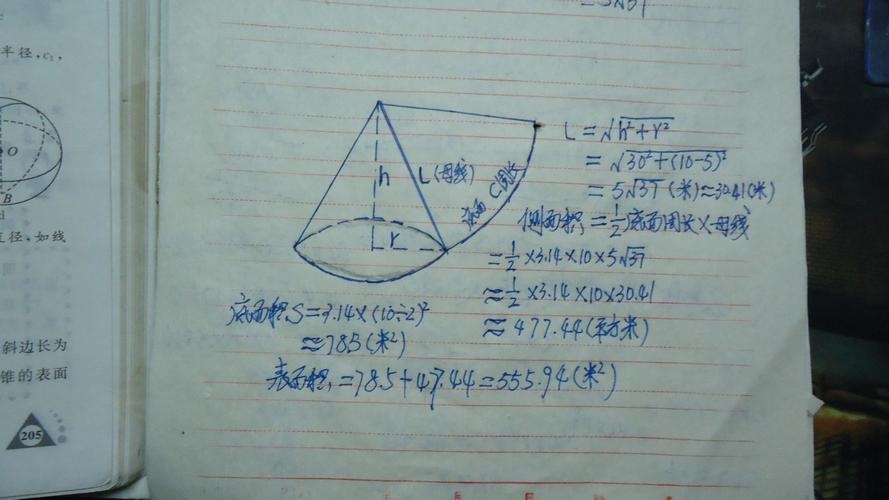 半径,c₁,
O
B
d
直径、如线
斜边长为
锥的表面
205
= 5√37
h
L(母线)
r
底面C周长
L = √h²+r²
= √30²+(10-5)²
= 5√37 (米)≈30.41(米)
侧面积 = ½底面周长×母线
= ½ ×3.14×10×5√37
≈ ½ ×3.14×10×30.41
≈ 477.44(平方米)
底面积S=3.14×(10÷2)²
≈785(米²)
表面积=78.5+47.44=555.94(米²)